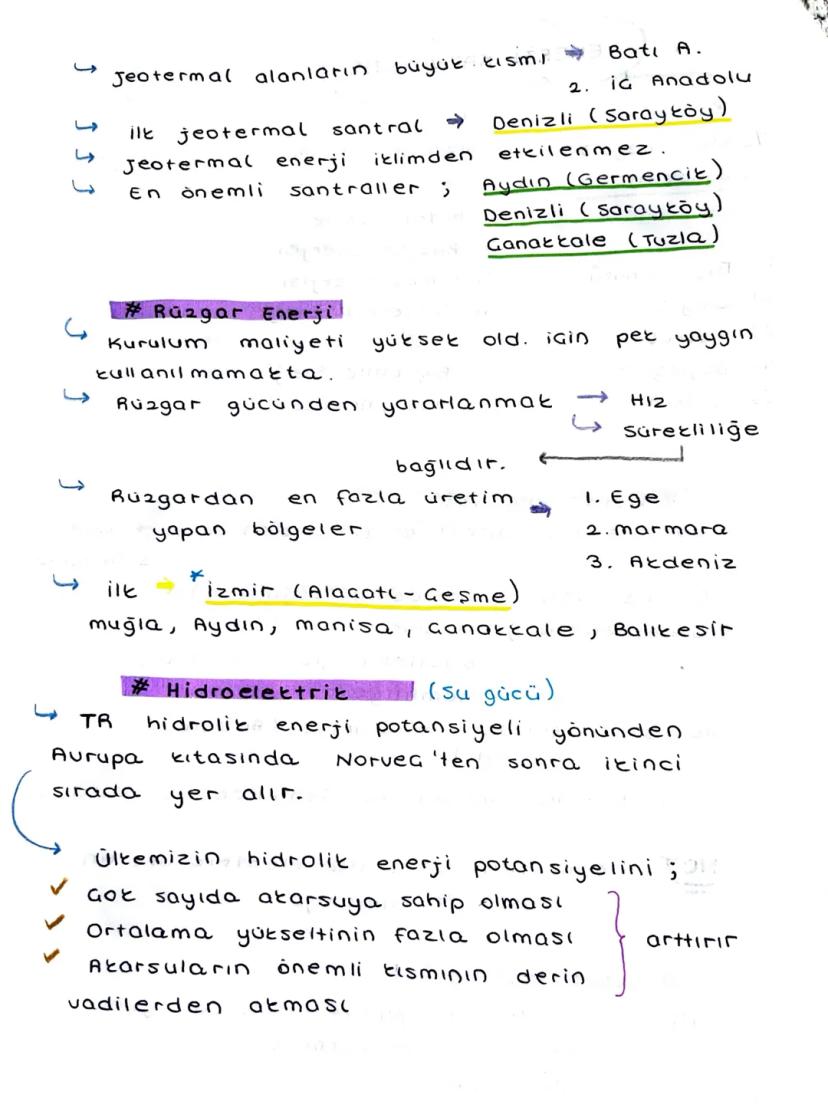 ↳ Jeotermal alanların büyük kısmı → Batı A.
2. iç Anadolu
↳ ilk jeotermal santral → Denizli (Sarayköy)
↳ Jeotermal enerji iklimden etkilenmez.
↳ En önemli santraller ; Aydın (Germencik)
Denizli (Sarayköy)
Çanakkale (Tuzla)
# Rüzgar Enerji
↳ Kurulum maliyeti yüksek old. için pek yaygın
kullanılmamakta.
↳ Rüzgar gücünden yararlanmak → Hız
↳ Sürekliliğe
bağlıdır. ←
↳ Rüzgardan en fazla üretim → 1. Ege
yapan bölgeler 2. marmara
3. Akdeniz
↳ ilk → * izmir (Alaçatı - Çeşme)
muğla, Aydın, manisa, Çanakkale, Balıkesir
# Hidroelektrik (su gücü)
↳ TR hidrolik enerji potansiyeli yönünden
Avrupa kıtasında Norveç'ten sonra ikinci
sırada yer alır.
Ülkemizin hidrolik enerji potansiyelini ;
✓ Çok sayıda akarsuya sahip olması
✓ Ortalama yükseltinin fazla olması } arttırır
✓ Akarsuların önemli kısmının derin
vadilerden akması